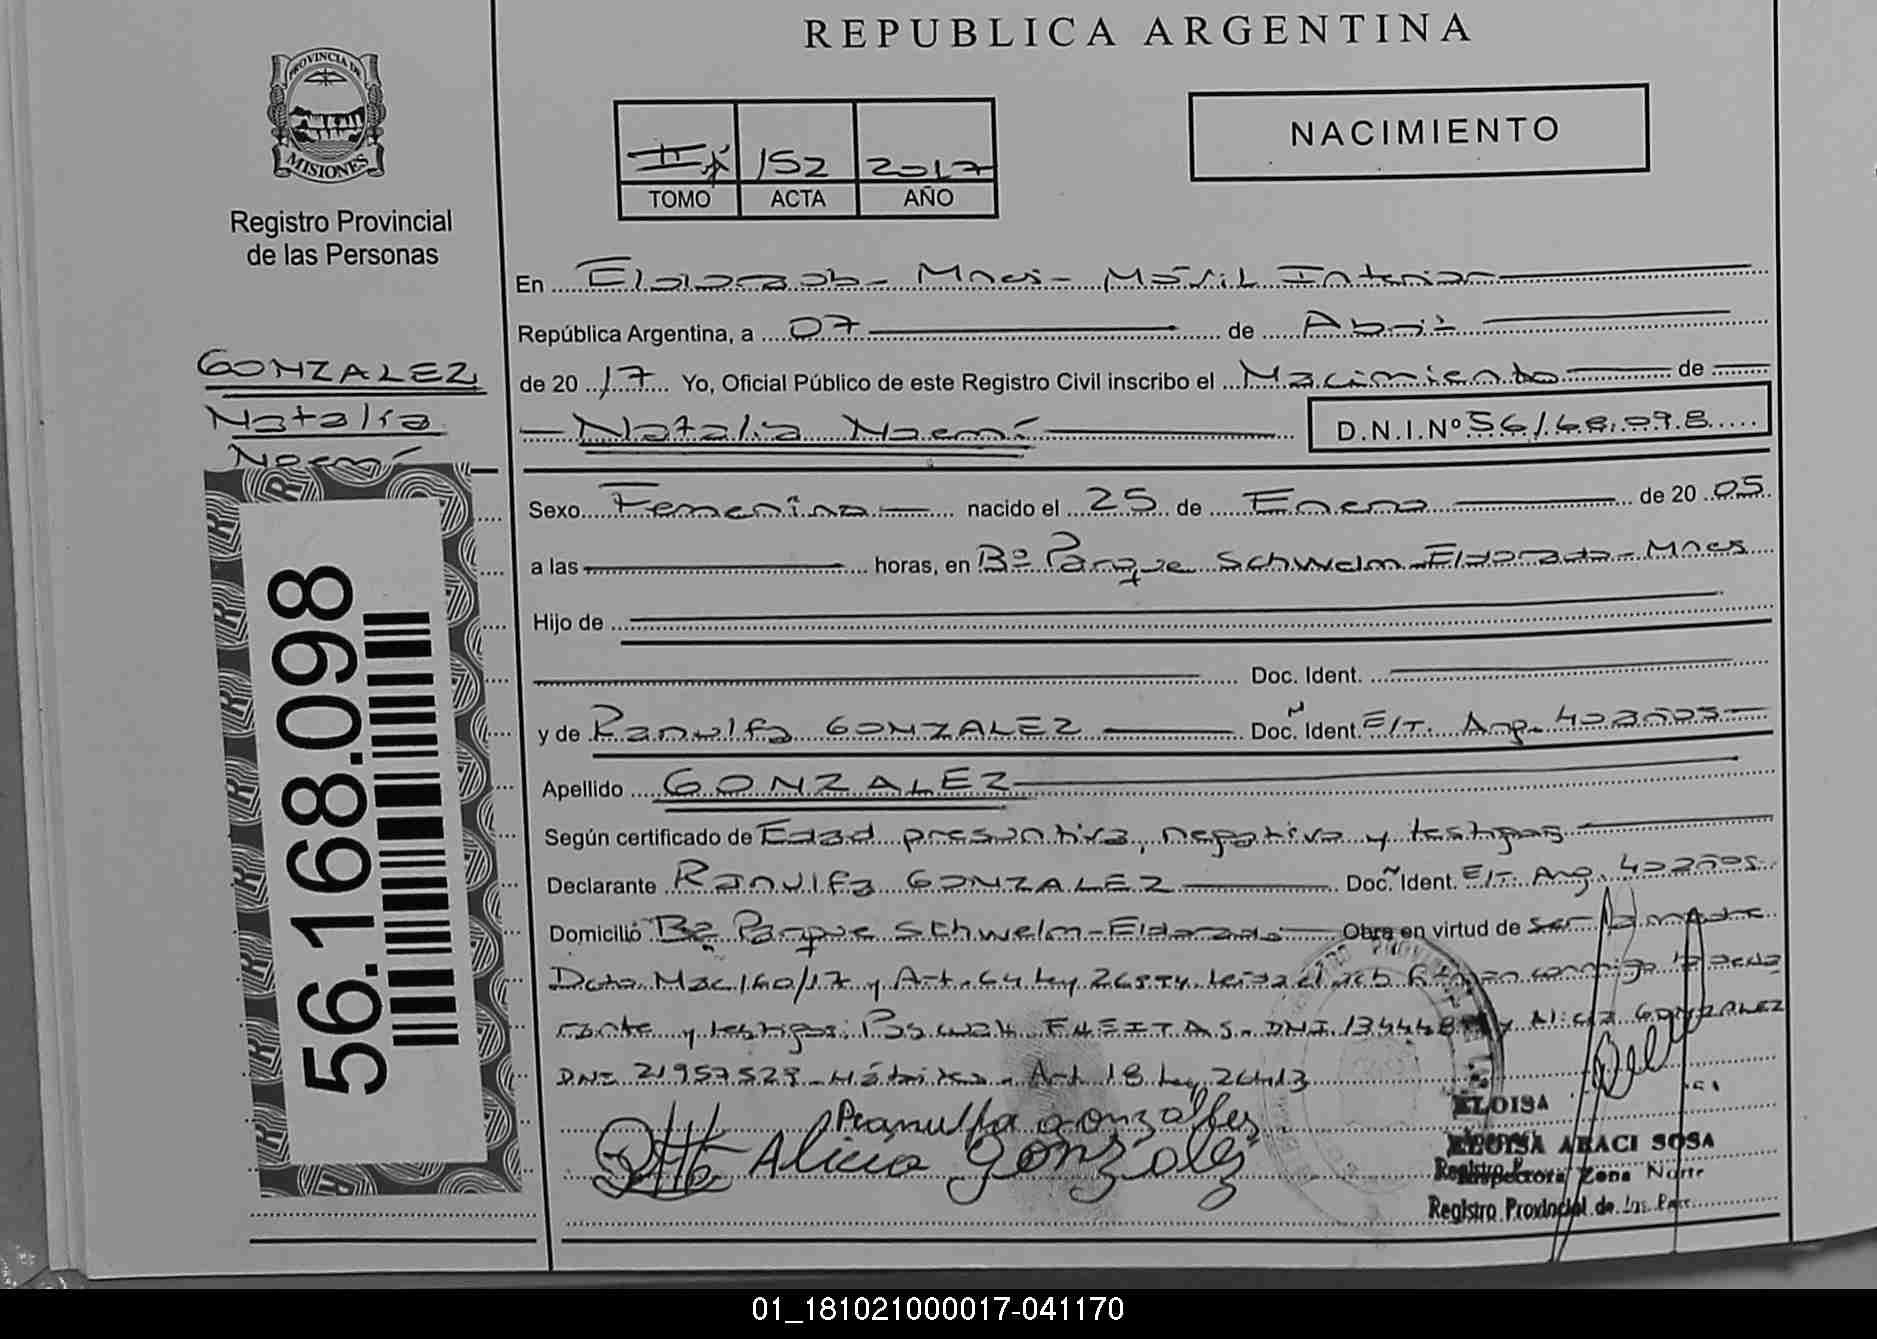 REPUBLICA ARGENTINA
PROVINCIA DE
MISIONES
Registro Provincial
de las Personas
152 2017
TOMO ACTA AÑO
NACIMIENTO
GONZALEZ
Natalia
Noemí
56.168.098
En Eldorado - Mnes - Móvil Interior
República Argentina, a 07 de Abril
de 2017 Yo, Oficial Público de este Registro Civil inscribo el Nacimiento de
Natalia Noemí D.N.I.Nº 56.168.098
Sexo Femenino nacido el 25 de Enero de 2005
a las horas, en Bº Parque Schwelm - Eldorado - Mnes
Hijo de
Doc. Ident.
y de Ranulfa GONZALEZ Doc. Ident. Arg. 40 años
Apellido GONZALEZ
Según certificado de Edad presuntiva, negativa y testigos
Declarante Ranulfa GONZALEZ Doc. Ident. Arg. 40 años
Domicilio Bº Parque Schwelm - Eldorado Obra en virtud de ser la madre
y Art. 64 Ley conmigo la decla
rante y testigos: DNI y Alicia GONZALEZ
DNI Art. 18 Ley 26413
Ranulfa gonzalles
Alicia Gonzalez
ELOISA
ELOISA ARACI SOSA
Inspectora Zona Norte
Registro Provincial de las Pers.
01_181021000017-041170